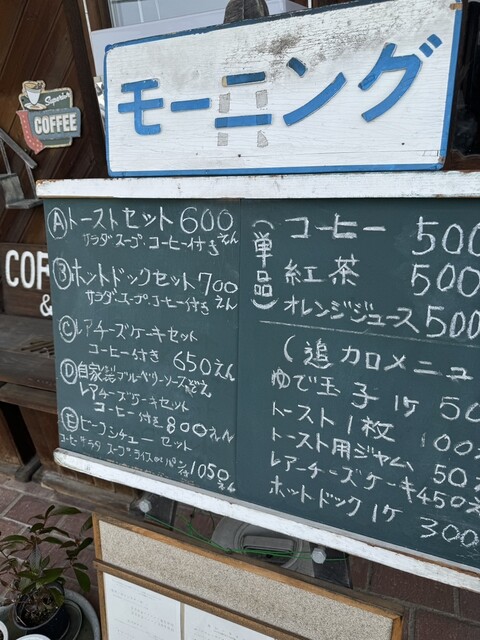 モーニング
Superior
COFFEE
COF
&
Ⓐトーストセット 600えん
サラダ スープ コーヒー付き
Ⓑホットドックセット 700えん
サラダ スープ コーヒー付き
Ⓒレアチーズケーキセット
コーヒー付き 650えん
Ⓓ自家製ブルーベリーソース
レアチーズケーキセット
コーヒー付き 800えん
Ⓔビーフシチューセット
コーヒー サラダ スープ ライス パン 1050えん
(単品)
コーヒー 500
紅茶 500
オレンジジュース 500
(追加メニュ
ゆで玉子 1ケ 50
トースト1枚 100
トースト用ジャム 50え
レアーチーズケーキ 450え
ホットドック1ケ 300